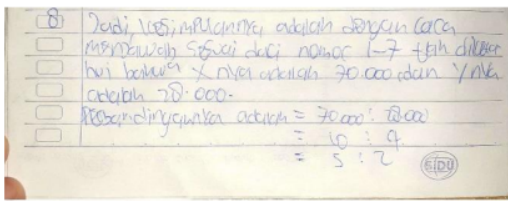 8 Jadi, kesimpulannya adalah dengan cara
menjawab sesuai dari nomor 1-7 telah diketa
hui bahwa X nya adalah 70.000 dan Y nya
adalah 28.000.
Perbandingannya adalah = 70.000 : 28.000
= 10 : 4
= 5 : 2
SIDU